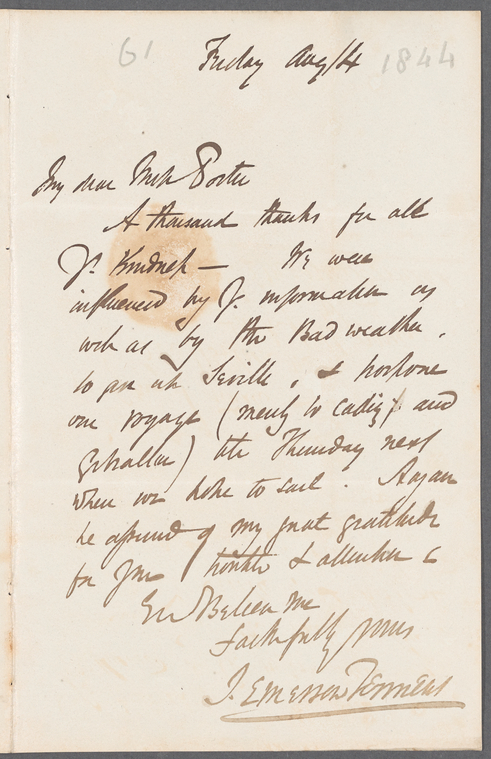 61
Friday Aug/4 1844
My dear Miss Porter
A thousand thanks for all
Yr. Kindness — We were
influenced by Yr. information as
well as by the Bad weather,
to Seville, & postpone
our voyage (merely to Cadiz and
Gibraltar) till Thursday next
when we hope to sail. Again
be assured of my great gratitude
for your trouble & attention &
Ever Believe me
faithfully yours
J. Emerson Tennent